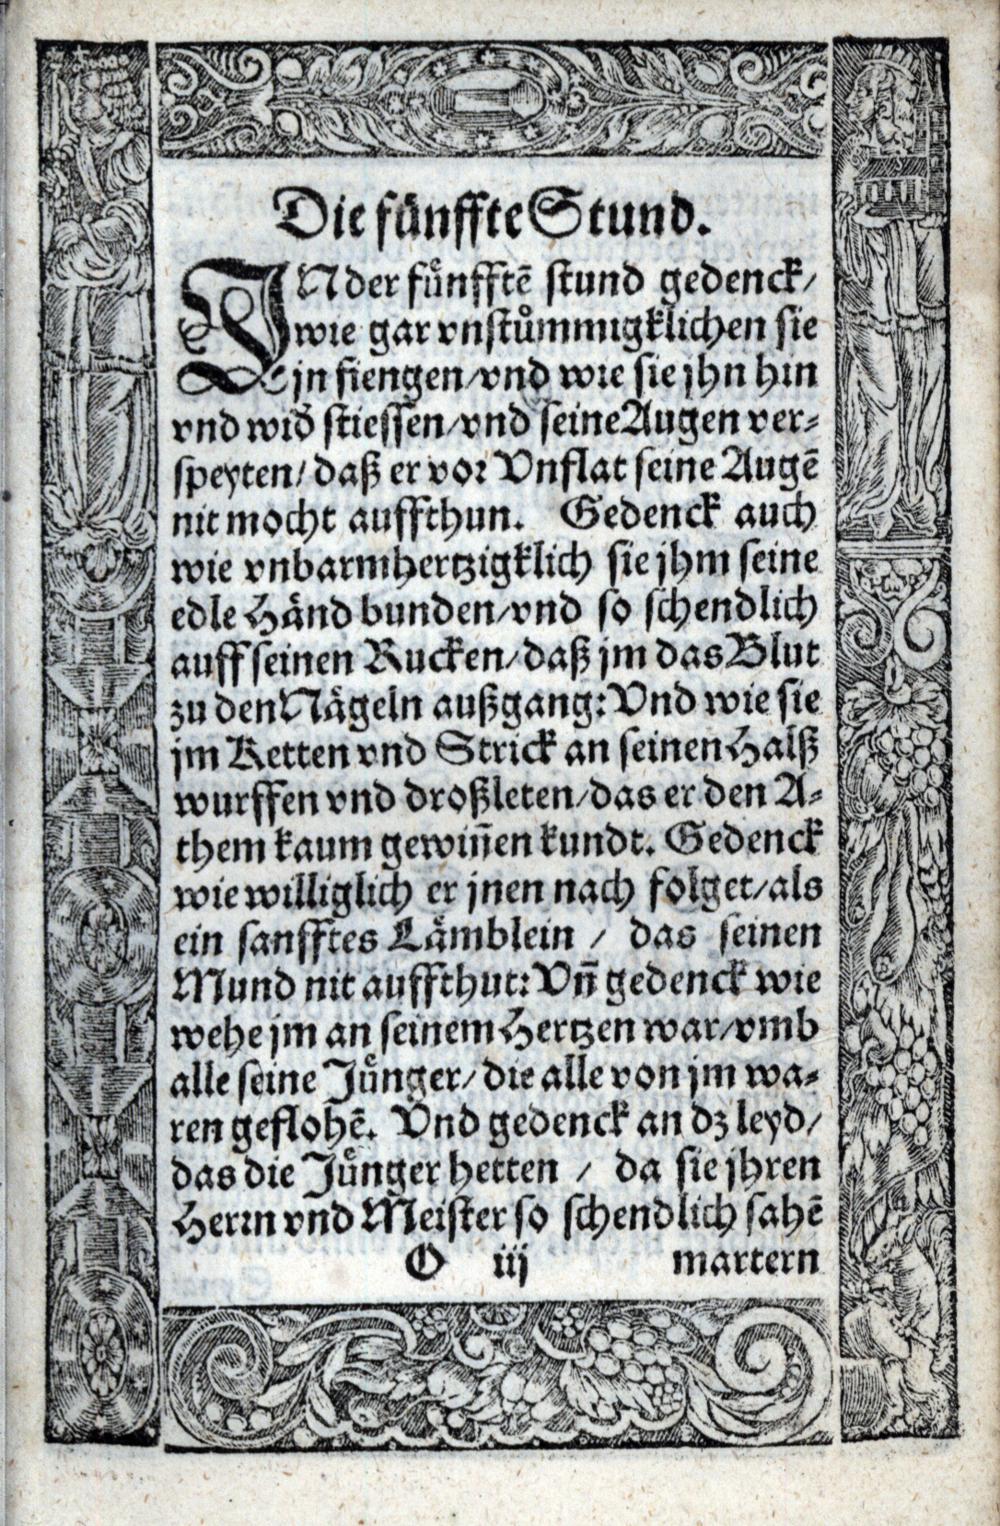 Die fünffte Stund.
IN der fünfftẽ stund gedenck/
wie gar vnstůmmigklichen sie
jn fiengen/vnd wie sie jhn hin
vnd wid̃ stiessen/vnd seine Augen ver-
speyten/daß er vor Vnflat seine Augẽ
nit mocht auffthun. Gedenck auch
wie vnbarmhertzigklich sie jhm seine
edle Händ bunden/vnd so schendlich
auff seinen Rucken/daß jm das Blut
zu den Nägeln außgang: Vnd wie sie
jm Ketten vnd Strick an seinen Halß
wurffen vnd droßleten/das er den A-
them kaum gewiñen kundt. Gedenck
wie williglich er jnen nach folget/als
ein sanfftes Lämblein / das seinen
Mund nit auffthut: Vñ gedenck wie
wehe jm an seinem Hertzen war/vmb
alle seine Jünger/die alle von jm wa-
ren geflohẽ. Vnd gedenck an dz leyd/
das die Jünger hetten / da sie jhren
Herrn vnd Meister so schendlich sahẽ
O iij martern